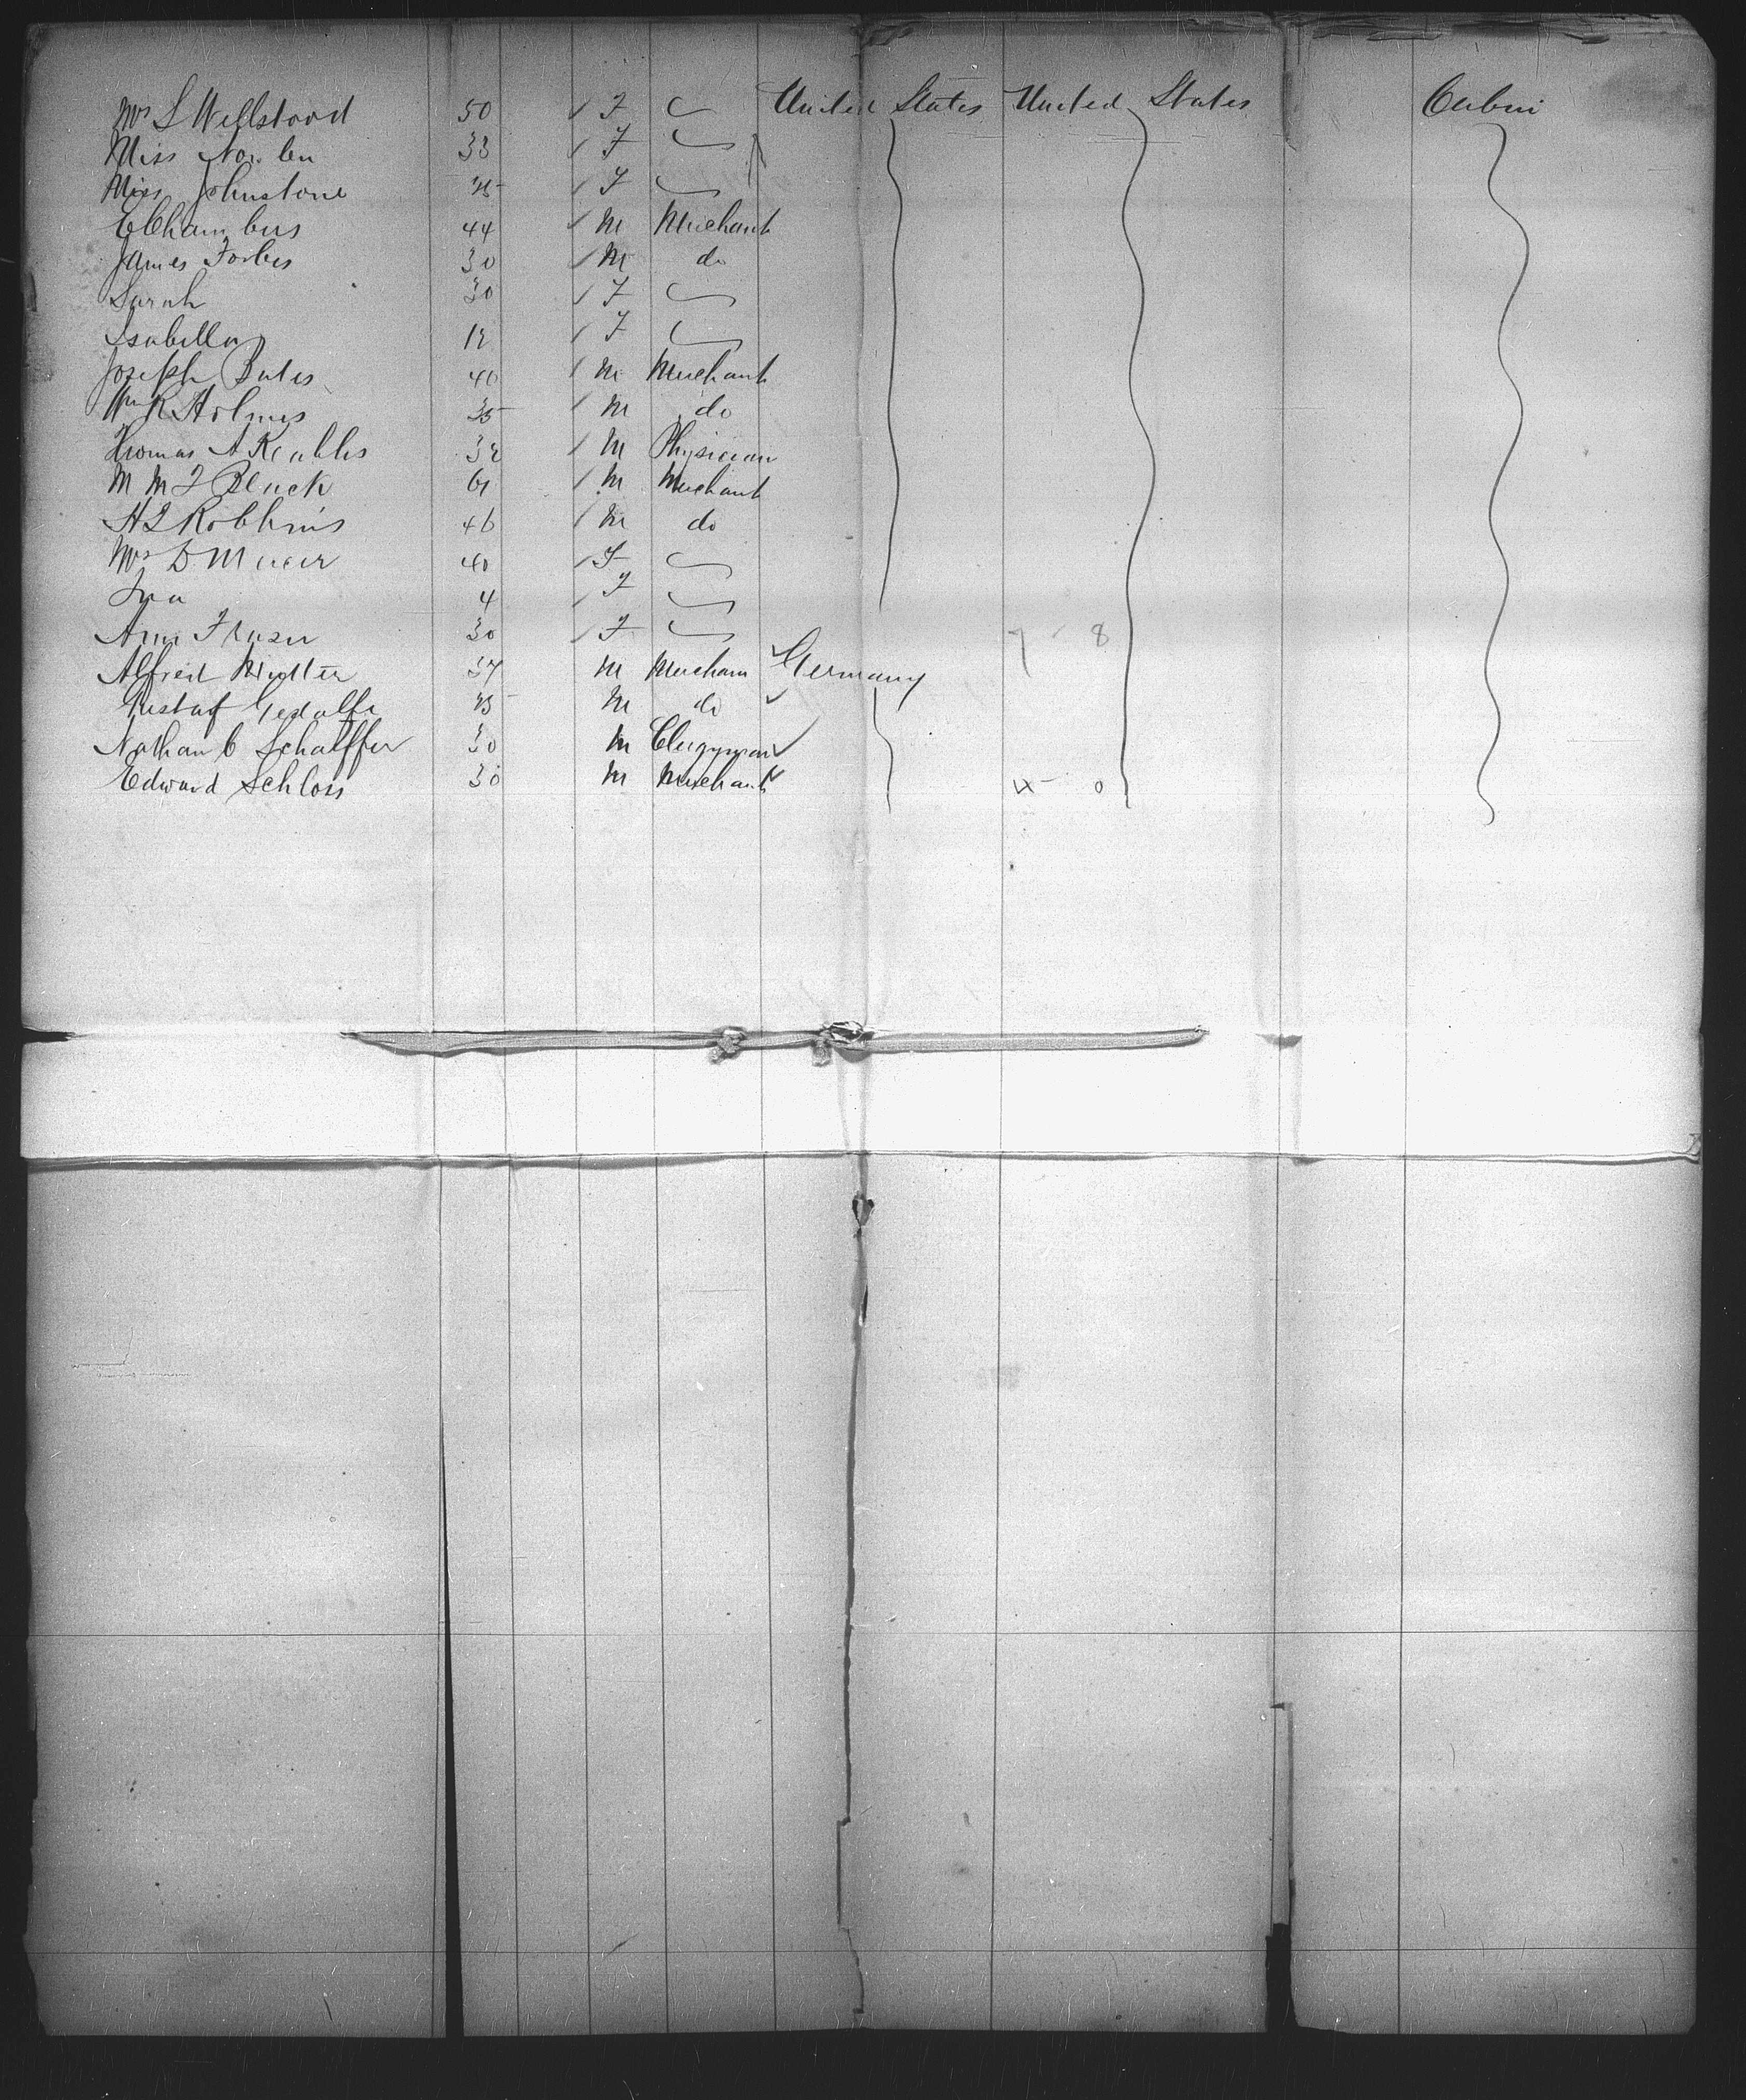 Mrs S Wellstood 50 / F United States United States Cabin
Miss 33 / F
Miss Johnstone / F
E Chambers 44 / M Merchant
James Forbes 30 / M do
Sarah 30 / F
Isabella 12 / F
Joseph Bates 40 / M Merchant
Wm R Holmes 35 / M do
Thomas A 32 / M Physician
M M F Black / M Merchant
H L Robbins 46 / M do
Mrs D 40 / F
4 / F
Ann Fraser 30 / F 7 8
Alfred 37 M Merchant Germany
Gustaf M do
Nathan C Schaeffer 30 M Clergyman
Edward Schloss 30 M Merchant 4 0